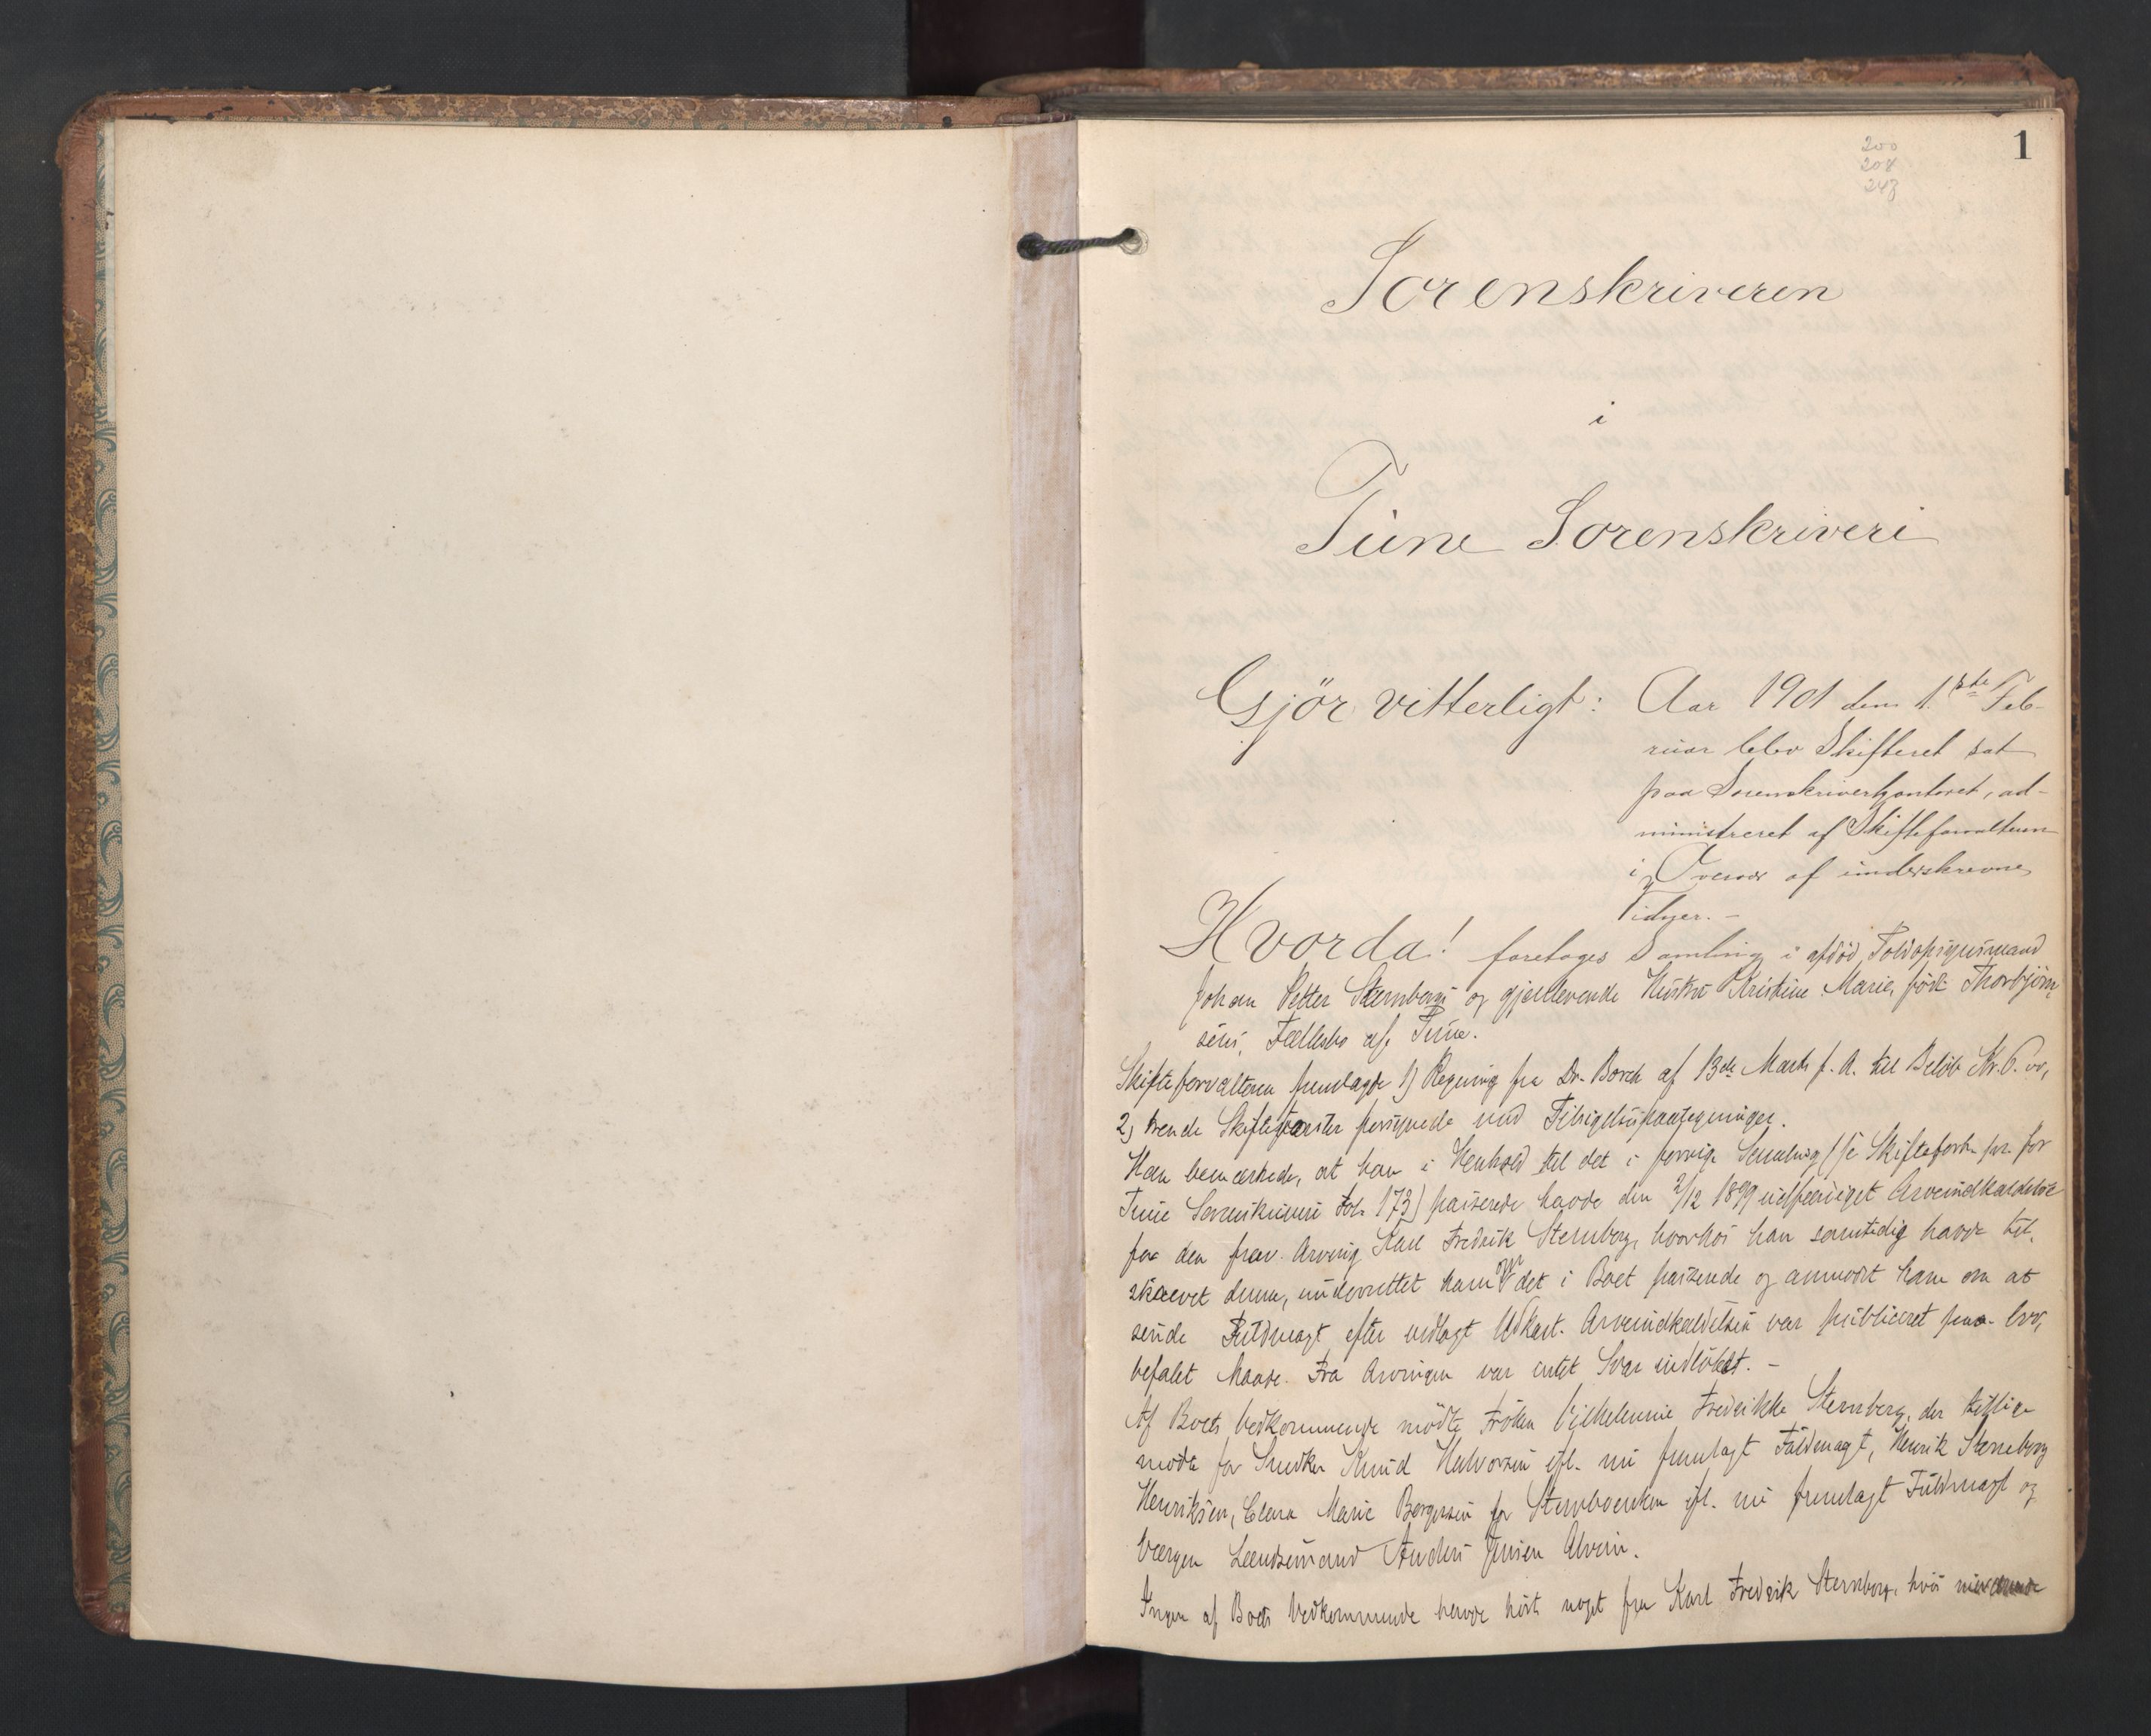 1
200
208
248
Sorenskriveren
i
Tune Sorenskriveri
Gjör vitterligt: Aar 1901 den 1ste Feb-
ruar blev Skifteret sat
paa Sorenskriverkontoret, ad-
ministreret af Skifteforvalteren
i Overvær af underskrevne
Vidner. -
Hvorda! foretoges Samling i afdöd Toldopsynsmand
Johan Petter Sternbergs og gjenlevende Hustru Kristine Marie, född Thorbjörn-
sens, Fællesbo af Tune.
Skifteforvalteren fremlagde 1) Regning fra Dr. Borch af 13de Marts f. A. til Belöb Kr. 6.00,
2) trende Skifteposter forsynede med Tilsigelsespaategninger.
Han bemærkede, at han i Henhold til det i forrige Samling (se Skifteforh. pr. for
Tune Sorenskriveri Fol. 173) passerede havde den 2/12 1899 udfærdiget Arveindkaldelse
for den fravær. Arving Karl Fredrik Sternberg, hvorhos han samtidig havde til-
skrevet denne, underrettet ham om det i Boet passerede og anmodet ham om at
sende Fuldmagt efter vedlagt Udkast. Arveindkaldelsen var publiceret paa lov-
befalet Maade. Fra Arvingen var intet Svar indlöbet. -
Af Boets Vedkommende mödte Fröken Vilhelmine Fredrikke Sternberg, der tillige
mödte for Snedker Knud Halvorsen ifl. nu fremlagt Fuldmagt, Henrik Sternberg
Henriksen, Clara Marie Borgersen for Sternboenken ifl. nu fremlagt Fuldmagt og
Værgen Lændsmand Anders Jensen Alvim.
Ingen af Boets Vedkommende havde hört noget fra Karl Fredrik Sternberg, hvis nuværende